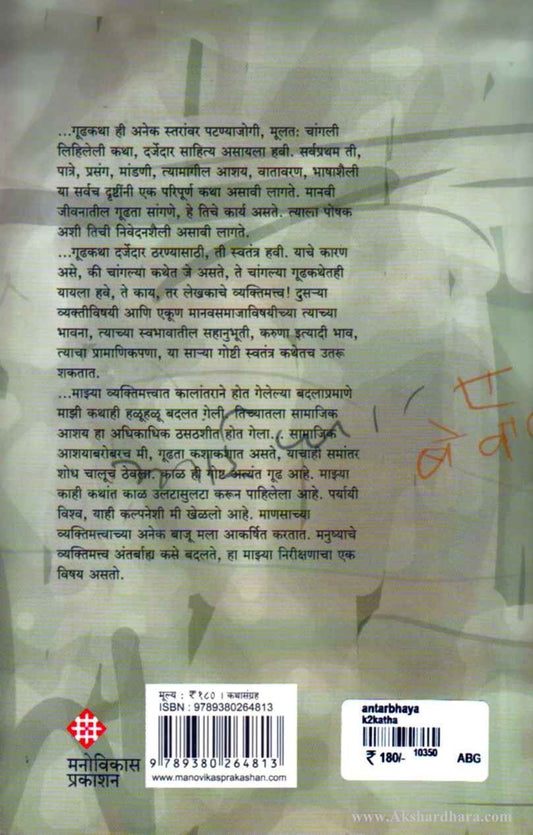 ...गूढकथा ही अनेक स्तरांवर पटण्याजोगी, मूलत: चांगली
लिहिलेली कथा, दर्जेदार साहित्य असायला हवी. सर्वप्रथम ती,
पात्रे, प्रसंग, मांडणी, त्यामागील आशय, वातावरण, भाषाशैली
या सर्वच दृष्टींनी एक परिपूर्ण कथा असावी लागते. मानवी
जीवनातील गूढता सांगणे, हे तिचे कार्य असते. त्याला पोषक
अशी तिची निवेदनशैली असावी लागते.
...गूढकथा दर्जेदार ठरण्यासाठी, ती स्वतंत्र हवी. याचे कारण
असे, की चांगल्या कथेत जे असते, ते चांगल्या गूढकथेतही
यायला हवे, ते काय, तर लेखकाचे व्यक्तिमत्त्व! दुसऱ्या
व्यक्तीविषयी आणि एकूण मानवसमाजाविषयीच्या त्याच्या
भावना, त्याच्या स्वभावातील सहानुभूती, करुणा इत्यादी भाव,
त्याचा प्रामाणिकपणा, या साऱ्या गोष्टी स्वतंत्र कथेतच उतरू
शकतात.
...माझ्या व्यक्तिमत्त्वात कालांतराने होत गेलेल्या बदलाप्रमाणे
माझी कथाही हळूहळू बदलत गेली. तिच्यातला सामाजिक
आशय हा अधिकाधिक ठसठशीत होत गेला... सामाजिक
आशयाबरोबरच मी, गूढता कशाकशात असते, याचाही समांतर
शोध चालूच ठेवला. काळ ही गोष्ट अत्यंत गूढ आहे. माझ्या
काही कथांत काळ उलटासुलटा करून पाहिलेला आहे. पर्यायी
विश्व, याही कल्पनेशी मी खेळलो आहे. माणसाच्या
व्यक्तिमत्त्वाच्या अनेक बाजू मला आकर्षित करतात. मनुष्याचे
व्यक्तिमत्त्व अंतर्बाह्य कसे बदलते, हा माझ्या निरीक्षणाचा एक
विषय असतो.
मनोविकास
प्रकाशन
मूल्य : ₹ १८० । कथासंग्रह
ISBN : 9789380264813
9 789380 264813
www.manovikasprakashan.com
antarbhaya
k2katha
₹ 180/- 10350 ABG
www.Akshardhara.com